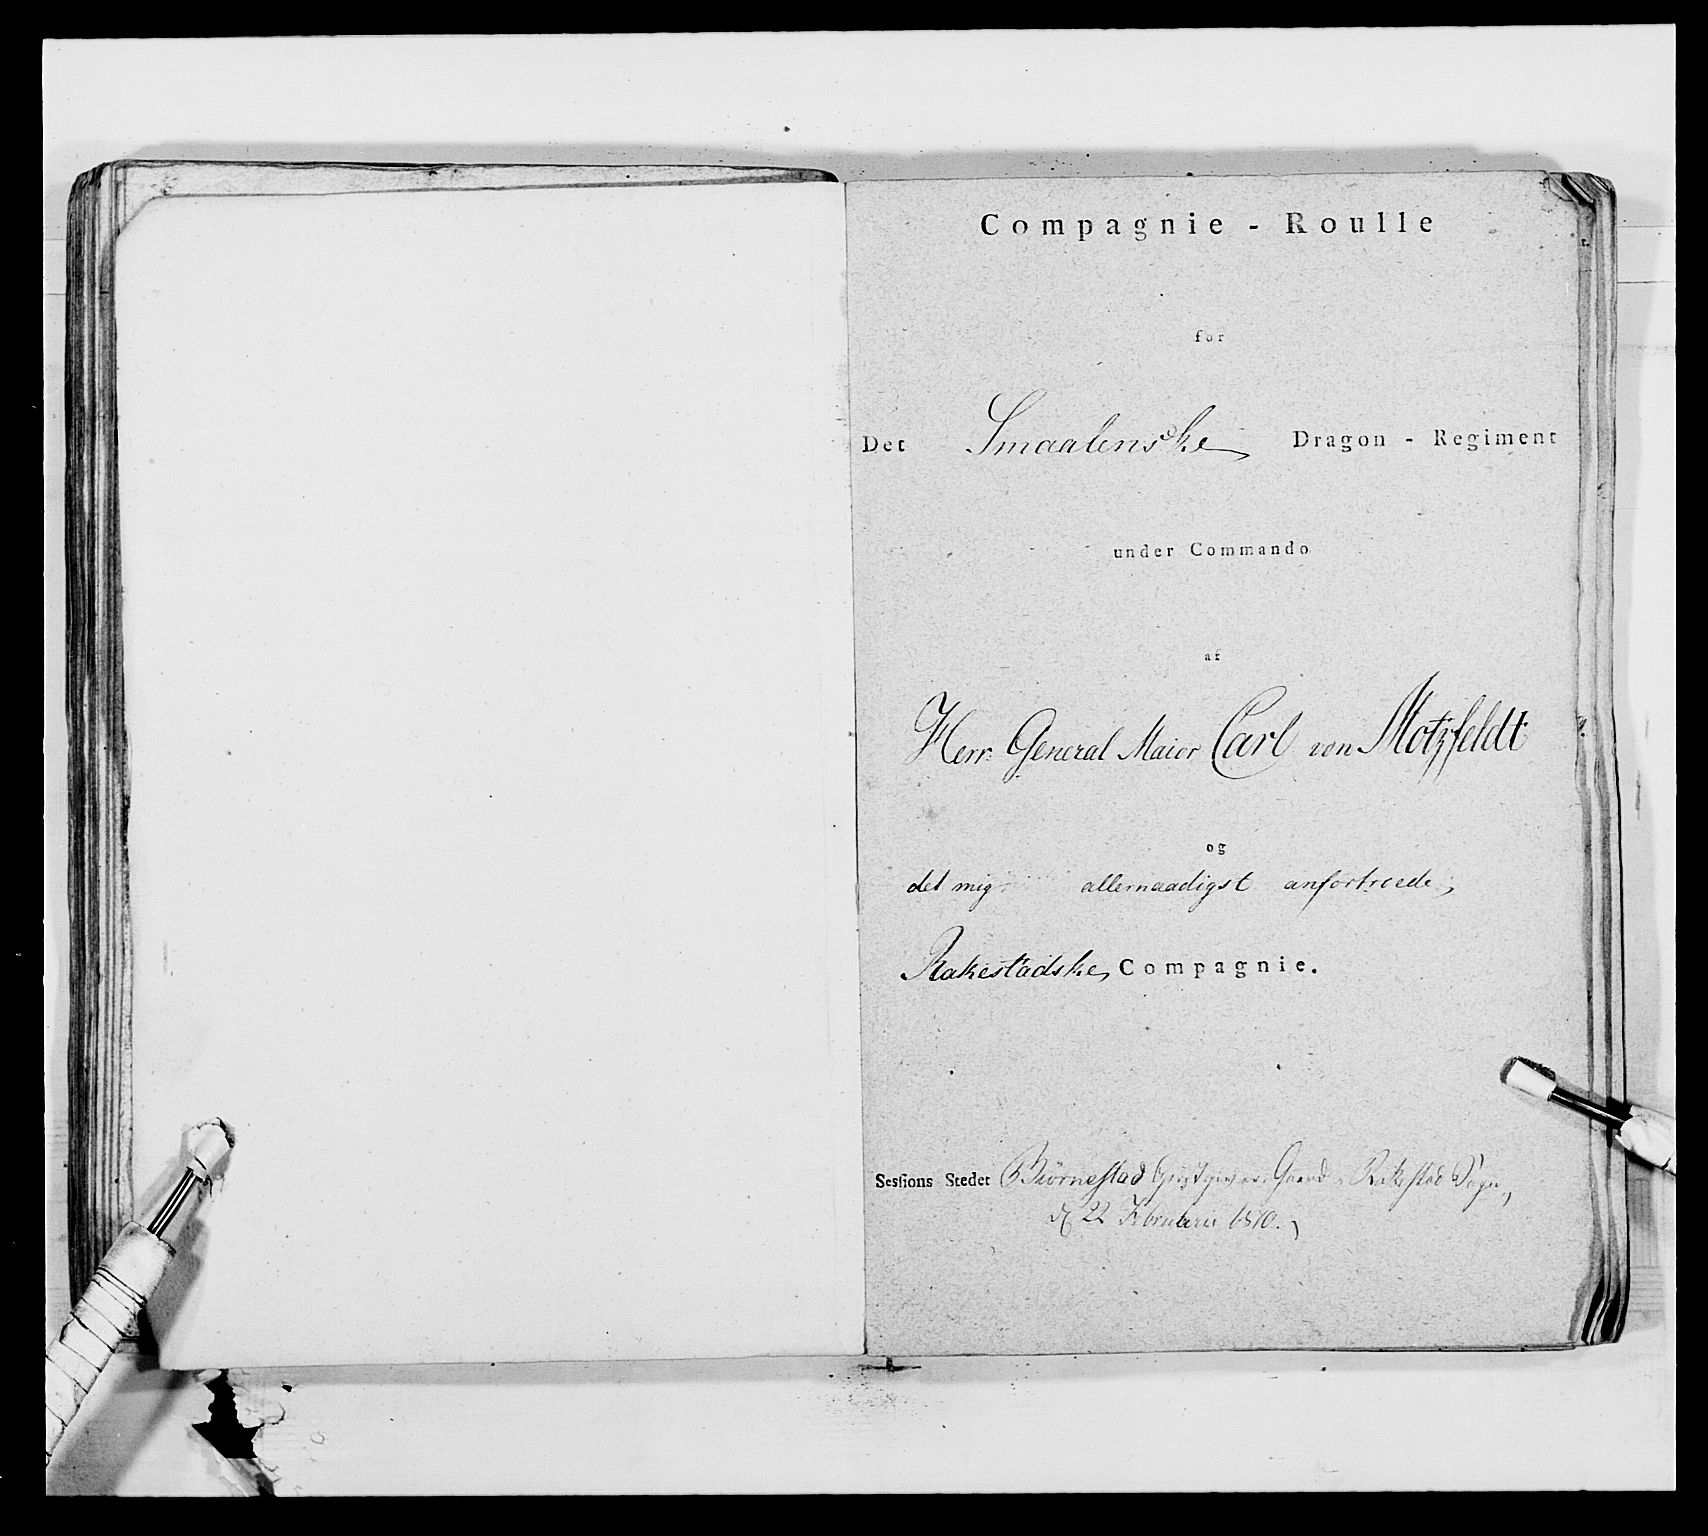 Compagnie - Roulle
for
Det Smaalenske Dragon - Regiment
under Commando
af
Herr General Maior Carl von Motzfeldt
og
det mig allernaadigst anfortroede,
Rakestadske Compagnie.
Sessions Stedet Biörnestad Giestgiver Gaard i Rakestad Sogn,
d 22 Februarii 1810.